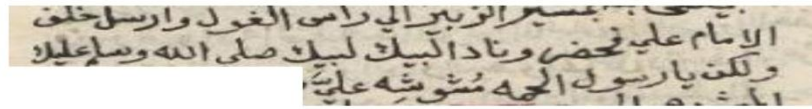 بمسير الزبير الي راس الغول وارسل خلف
الامام علي فحضر وناد البيك لبيك صلى الله وسلم عليك
ولكن يا رسول الحمه مشوشه علي